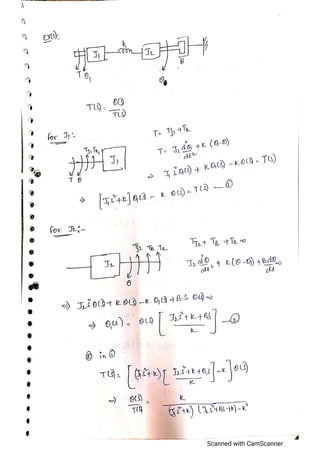 ex(1):
k
J₁
J₂
B
T θ₁
θ
T(s) = θ(s)/T(s)
for J₁:-
T = TJ₁ + Tk
TJ₁ Tk
J₁
T = J₁ d²θ₁/dt² + k (θ₁-θ)
T θ
⇒ J₁ s² θ₁(s) + k θ₁(s) - k.θ(s) = T(s)
⇒ [J₁s²+k] θ₁(s) - k θ(s) = T(s) — ①
for J₂:-
TJ₂ TB Tk
TJ₂ + TB + Tk = 0
J₂
J₂ d²θ/dt² + k(θ-θ₁) + B dθ/dt = 0
θ
⇒ J₂s² θ(s) + k θ(s) - k. θ₁(s) + B s θ(s) = 0
⇒ θ₁(s) = θ(s) [J₂s²+k+Bs / k] — ②
② in ①
T(s) = [(J₁s²+k) [J₂s²+k+Bs / k] - k] θ(s)
⇒ θ(s)/T(s) = k / (J₁s²+k) (J₂s²+Bs+k) - k²
Scanned with CamScanner